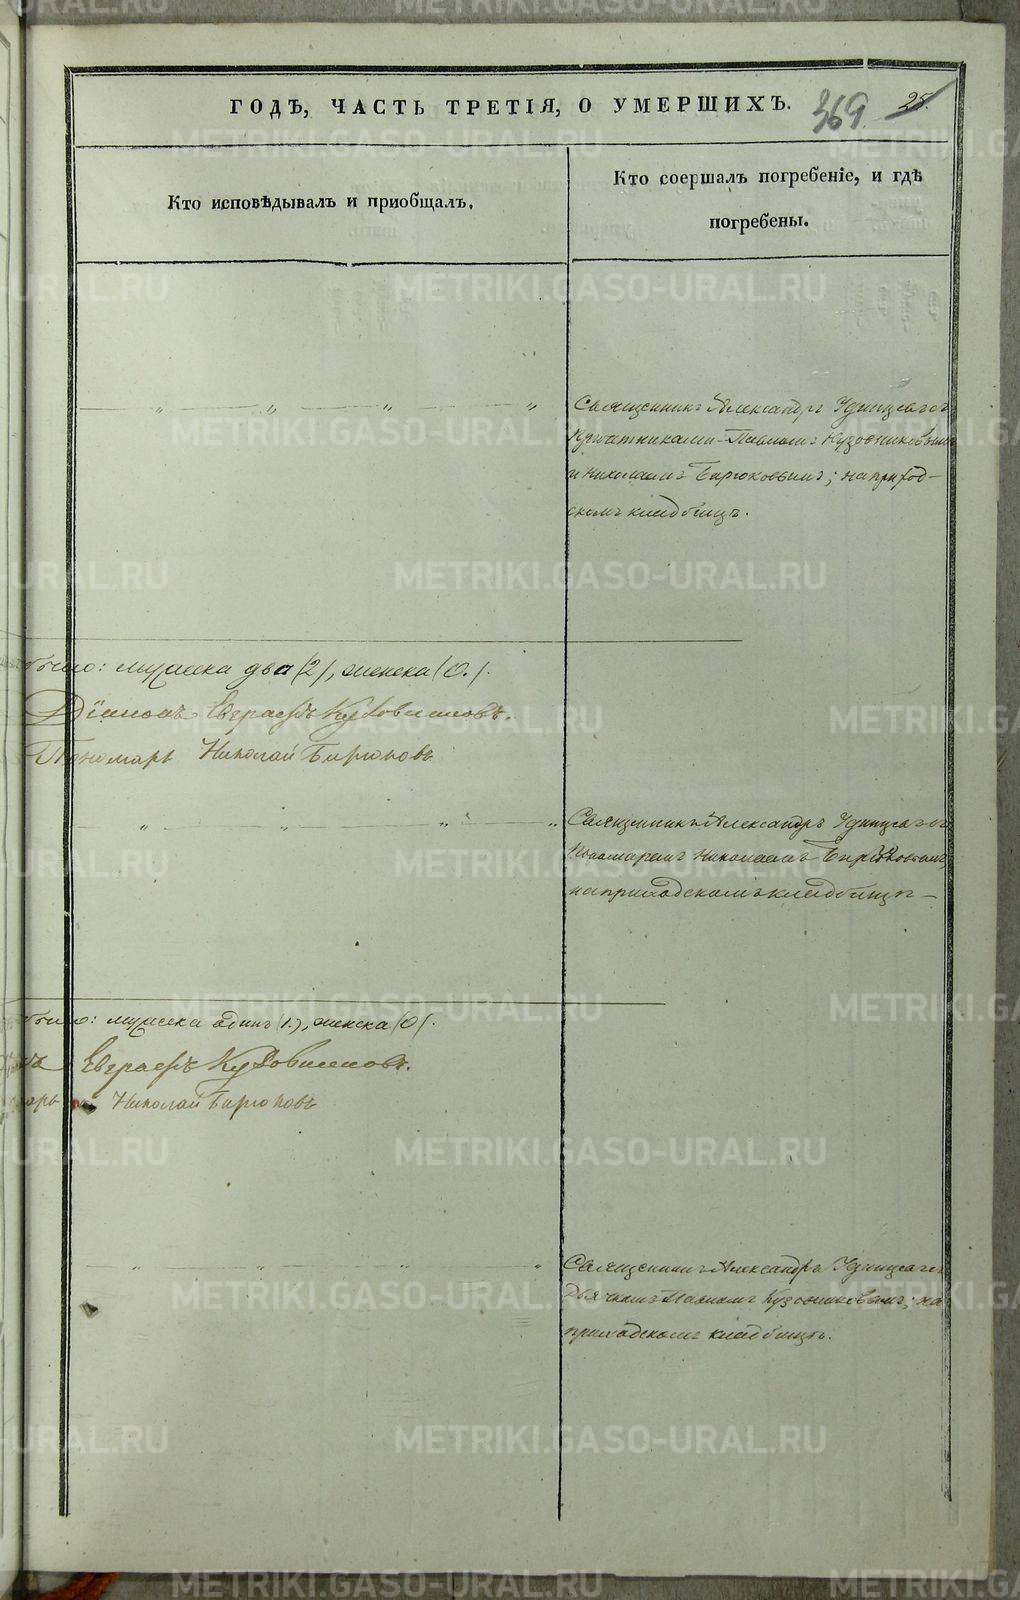 ГОДЪ, ЧАСТЬ ТРЕТІЯ, О УМЕРШИХЪ.
369 28.
Кто исповѣдывалъ и приобщалъ.
Кто соершалъ погребеніе, и гдѣ
погребены.
Священникъ Александръ Удинцевъ съ
Причетниками Павломъ Кузовниковымъ
и Николаемъ Бирюковымъ; на приход-
скомъ кладбищѣ.
было: мужеска два (2), женска (0.).
Діаконъ Евграфъ Кудовисновъ.
Пономарь Николай Бирюковъ
Священникъ Александръ Удинцевъ съ
Пономаремъ Николаемъ Бирюковымъ,
на приходскомъ кладбищѣ —
было: мужеска одинъ (1.), женска (0).
Евграфъ
Николай Бирюковъ
Священникъ Александръ Удинцевъ съ
Дьячкомъ Павломъ Кузовниковымъ; на
приходскомъ кладбищѣ.
METRIKI.GASO-URAL.RU